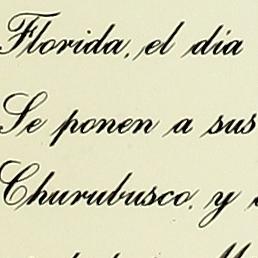 Florida, el día
Se ponen a sus
Churubusco, y